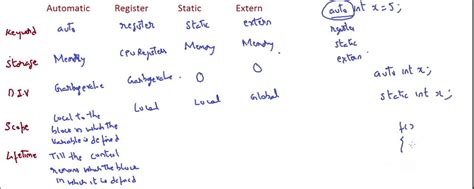 Automatic Register Static Extern
Keyword auto register static extern
Storage Memory CPU Registers Memory Memory
D.I.V Garbage value Garbage value 0 0
Scope Local to the block in which the variable is defined Local Local Global
Lifetime Till the control remains within the block in which it is defined
auto int x=5;
register
static
extern
auto int x;
static int x;
f()
{